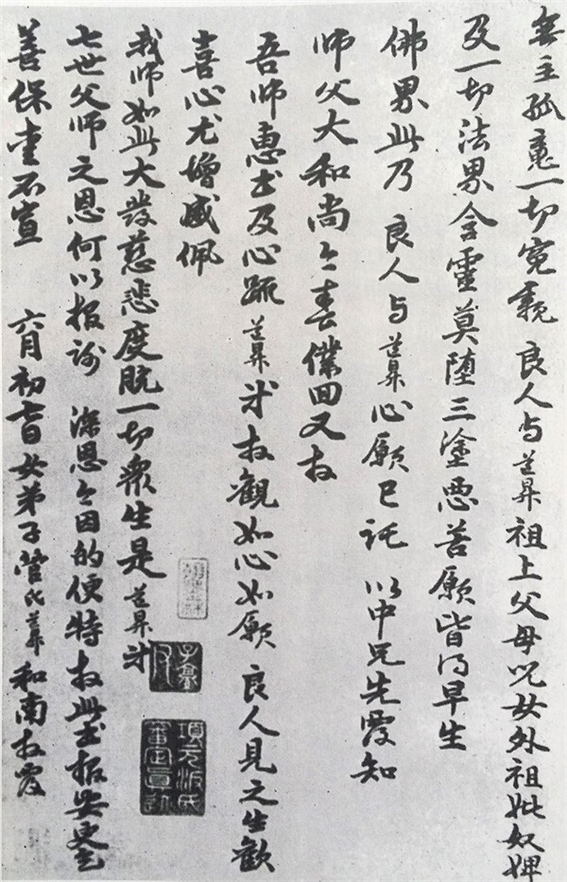 無主孤魂一切冤親 良人与道昇祖上父母兒女外祖妣奴婢
及一切法界含靈莫堕三塗惡苦願皆得早生
佛界此乃 良人与道昇心願已託 以中兄先覆知
師父大和尚今春僕回又拜
吾師惠書及心疏道昇等拜觀如心如願 良人見之生歡
喜心尤增感佩
我師如此大發慈悲度脱一切衆生是道昇等
七世父師之恩何以报謝 深恩今因的便特拜此書报安更乞
善保重不宣 六月初七日女弟子管氏道昇和南拜覆
項元汴氏審定真跡